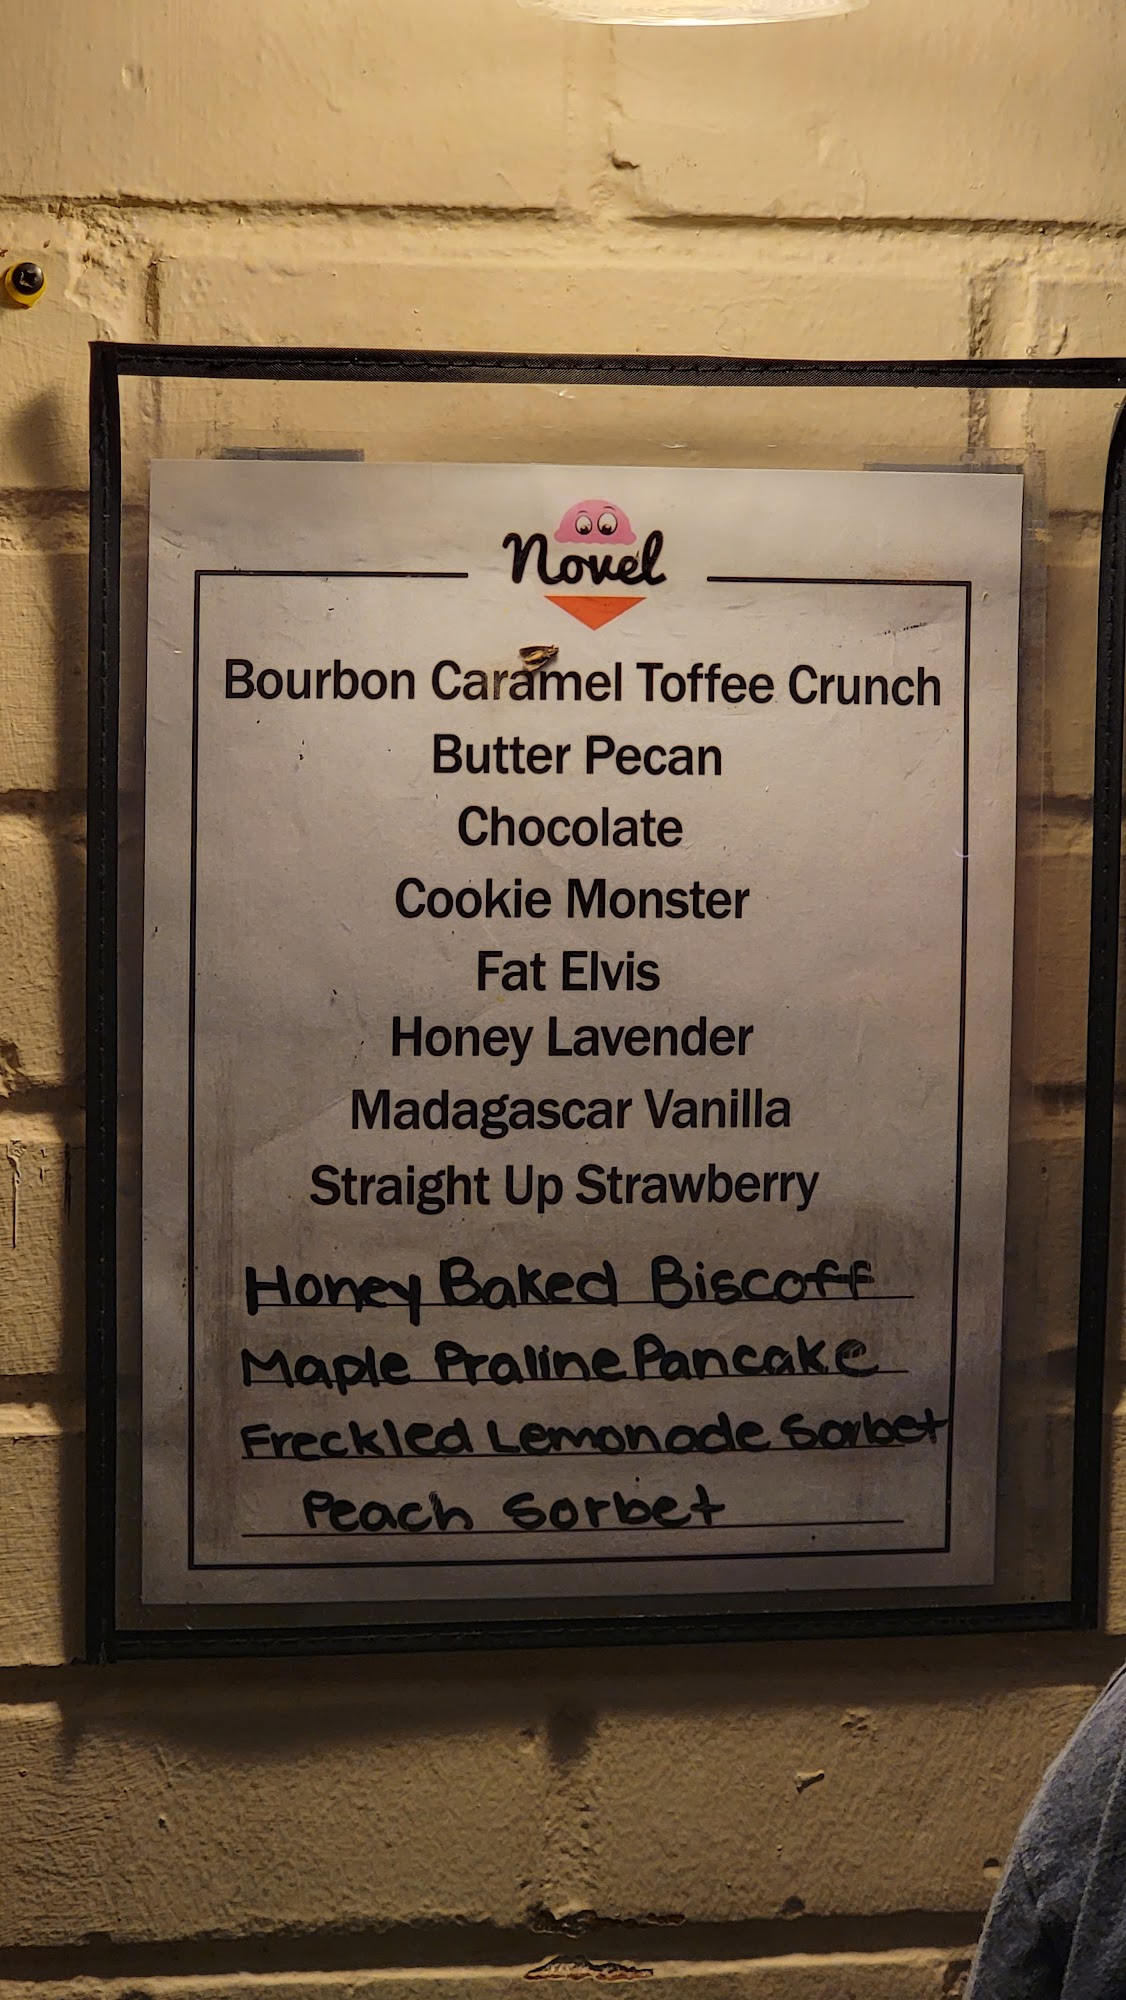 Novel
Bourbon Caramel Toffee Crunch
Butter Pecan
Chocolate
Cookie Monster
Fat Elvis
Honey Lavender
Madagascar Vanilla
Straight Up Strawberry
Honey Baked Biscoff
Maple Praline Pancake
Freckled Lemonade Sorbet
Peach Sorbet